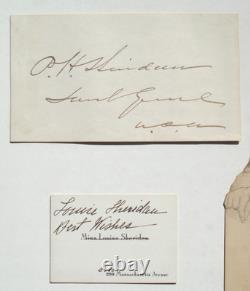 P. H. Sheridan
Lieut Genl
U.S.A
Louise Sheridan
Best Wishes
Miss Louise Sheridan
Massachusetts Avenue